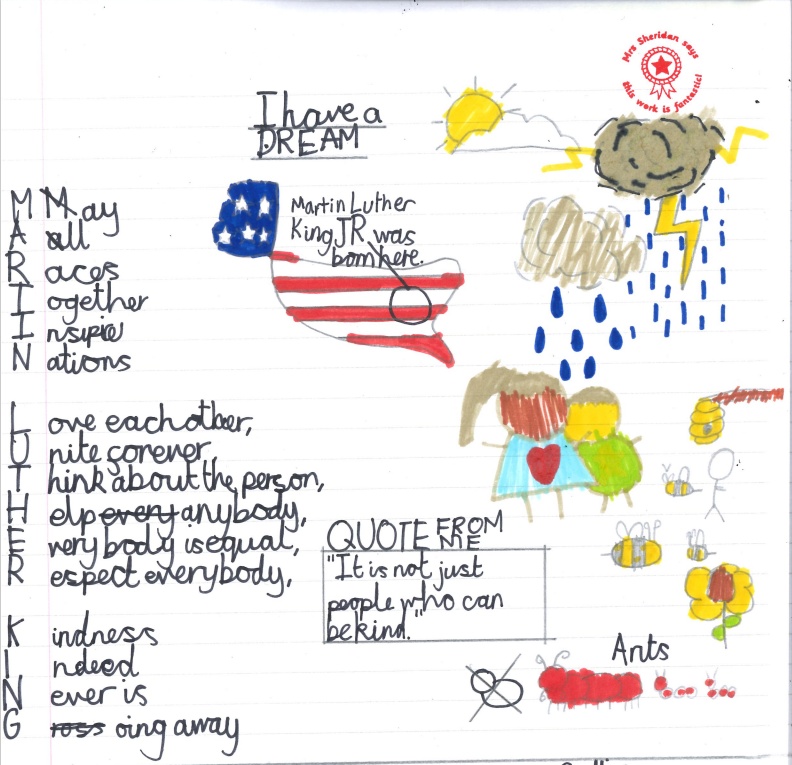 Mrs Sheridan says
this work is fantastic!
I have a
DREAM
Martin Luther
King JR was
born here.
M May
A all
R aces
T ogether
I nspire
N ations
L ove each other,
U nite forever,
T hink about the person,
H elp every anybody,
E very body is equal,
R espect everybody,
K indness
I ndeed
N ever is
G oing away
QUOTE FROM
ME
"It is not just
people who can
be kind."
Ants